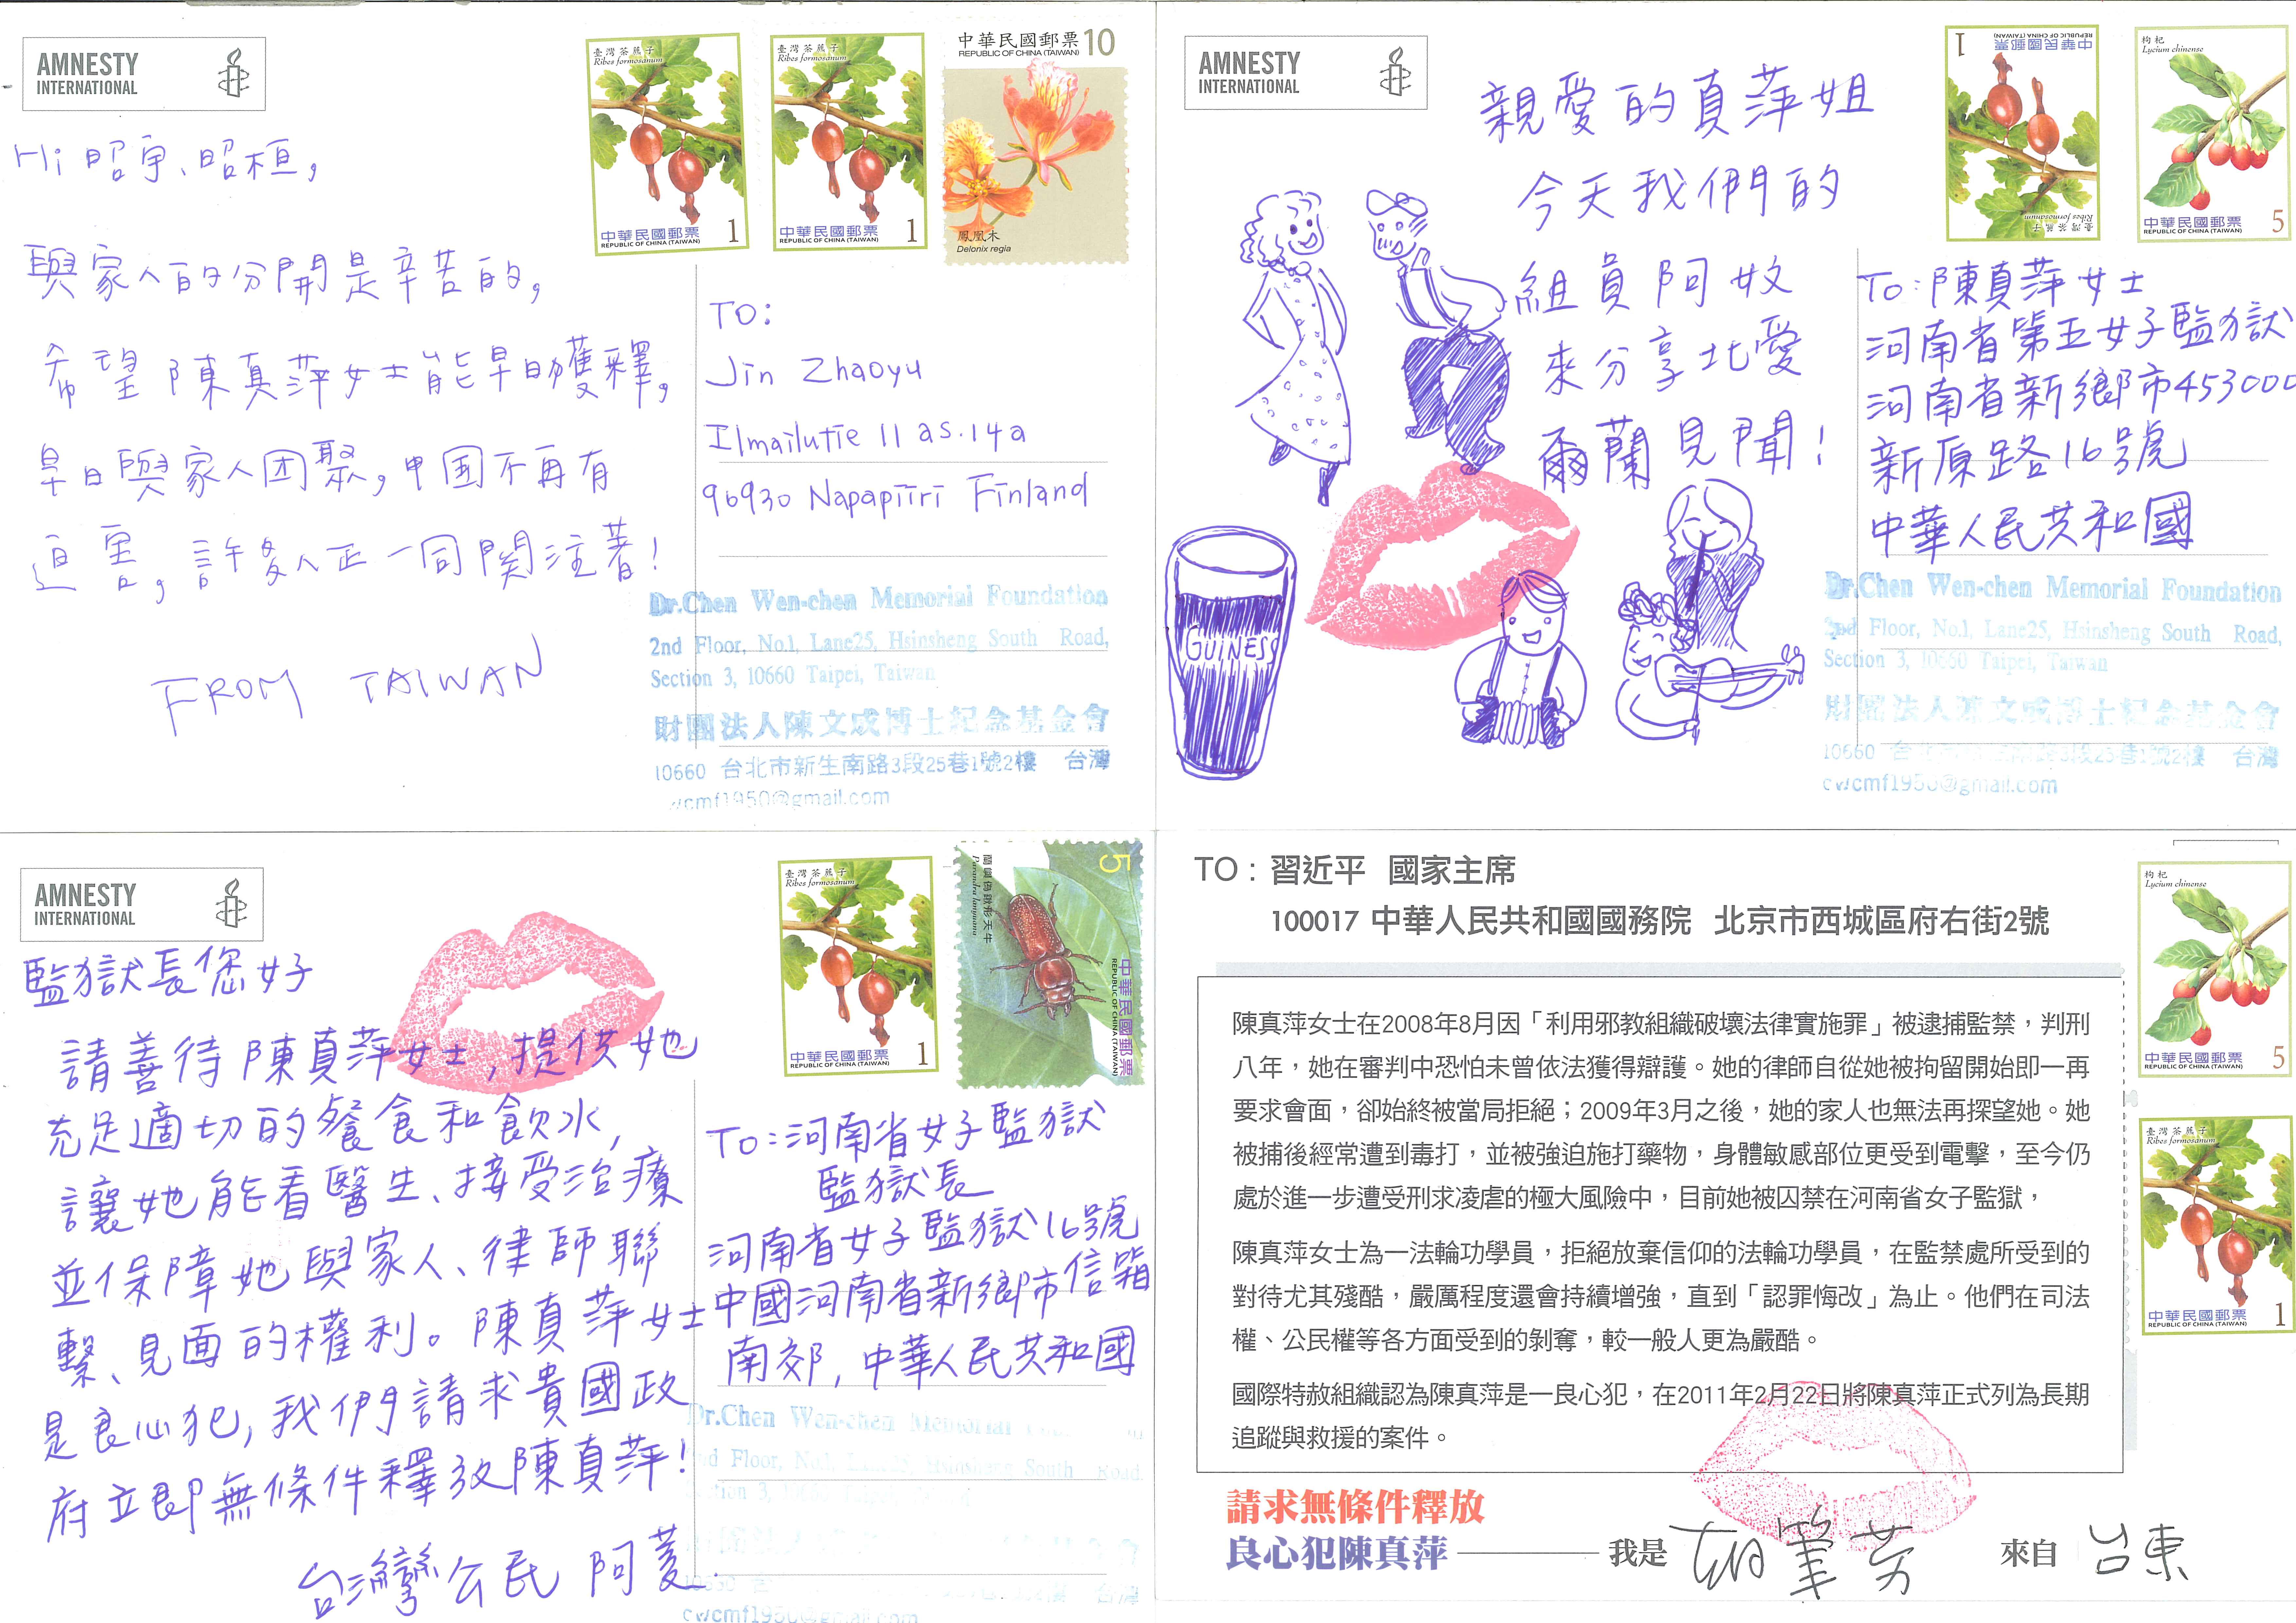 AMNESTY
INTERNATIONAL
臺灣茶藨子
Ribes formosanum
中華民國郵票
REPUBLIC OF CHINA (TAIWAN)
1
臺灣茶藨子
Ribes formosanum
中華民國郵票
REPUBLIC OF CHINA (TAIWAN)
1
中華民國郵票 10
REPUBLIC OF CHINA (TAIWAN)
鳳凰木
Delonix regia
Hi 昭宇、昭桓,
與家人的分開是辛苦的,
希望陳真萍女士能早日獲釋,
早日與家人团聚,中国不再有
迫害,許多人正一同関注著!
FROM TAIWAN
TO:
Jin Zhaoyu
Ilmailutie 11 as.14a
96930 Napapiiri Finland
Dr.Chen Wen-chen Memorial Foundation
2nd Floor, No.1, Lane25, Hsinsheng South Road,
Section 3, 10660 Taipei, Taiwan
財團法人陳文成博士紀念基金會
10660 台北市新生南路3段25巷1號2樓 台灣
cwcmf1950@gmail.com
AMNESTY
INTERNATIONAL
臺灣茶藨子
Ribes formosanum
中華民國郵票
REPUBLIC OF CHINA (TAIWAN)
1
枸杞
Lycium chinense
中華民國郵票
REPUBLIC OF CHINA (TAIWAN)
5
親愛的真萍姐
今天我們的
組員阿妏
來分享北愛
爾蘭見聞!
GUINESS
To:陳真萍女士
河南省第五女子監獄
河南省新鄉市453000
新原路16號
中華人民共和國
Dr.Chen Wen-chen Memorial Foundation
2nd Floor, No.1, Lane25, Hsinsheng South Road,
Section 3, 10660 Taipei, Taiwan
財團法人陳文成博士紀念基金會
10660 台北市新生南路3段25巷1號2樓 台灣
cwcmf1950@gmail.com
AMNESTY
INTERNATIONAL
臺灣茶藨子
Ribes formosanum
中華民國郵票
REPUBLIC OF CHINA (TAIWAN)
1
5
蘭嶼偽鍬形天牛
Parandra lanyuana
中華民國郵票
REPUBLIC OF CHINA (TAIWAN)
監獄長您好
請善待陳真萍女士,提供她
充足適切的餐食和飲水,
讓她能看醫生、接受治療
並保障她與家人、律師聯
繫、見面的權利。陳真萍女士
是良心犯,我們請求貴國政
府立即無條件釋放陳真萍!
台灣公民 阿菱
To:河南省女子監獄
監獄長
河南省女子監獄16號
信箱
中國河南省新鄉市
南郊,中華人民共和國
Dr.Chen Wen-chen Memorial
2nd Floor, No.1, Lane25, Hsinsheng South Road,
Section 3,
cwcmf1950@gmail.com
TO:習近平 國家主席
100017 中華人民共和國國務院 北京市西城區府右街2號
枸杞
Lycium chinense
中華民國郵票
REPUBLIC OF CHINA (TAIWAN)
5
臺灣茶藨子
Ribes formosanum
中華民國郵票
REPUBLIC OF CHINA (TAIWAN)
1
陳真萍女士在2008年8月因「利用邪教組織破壞法律實施罪」被逮捕監禁,判刑
八年,她在審判中恐怕未曾依法獲得辯護。她的律師自從她被拘留開始即一再
要求會面,卻始終被當局拒絕;2009年3月之後,她的家人也無法再探望她。她
被捕後經常遭到毒打,並被強迫施打藥物,身體敏感部位更受到電擊,至今仍
處於進一步遭受刑求凌虐的極大風險中,目前她被囚禁在河南省女子監獄,
陳真萍女士為一法輪功學員,拒絕放棄信仰的法輪功學員,在監禁處所受到的
對待尤其殘酷,嚴厲程度還會持續增強,直到「認罪悔改」為止。他們在司法
權、公民權等各方面受到的剝奪,較一般人更為嚴酷。
國際特赦組織認為陳真萍是一良心犯,在2011年2月22日將陳真萍正式列為長期
追蹤與救援的案件。
請求無條件釋放
良心犯陳真萍 我是 來自 台東